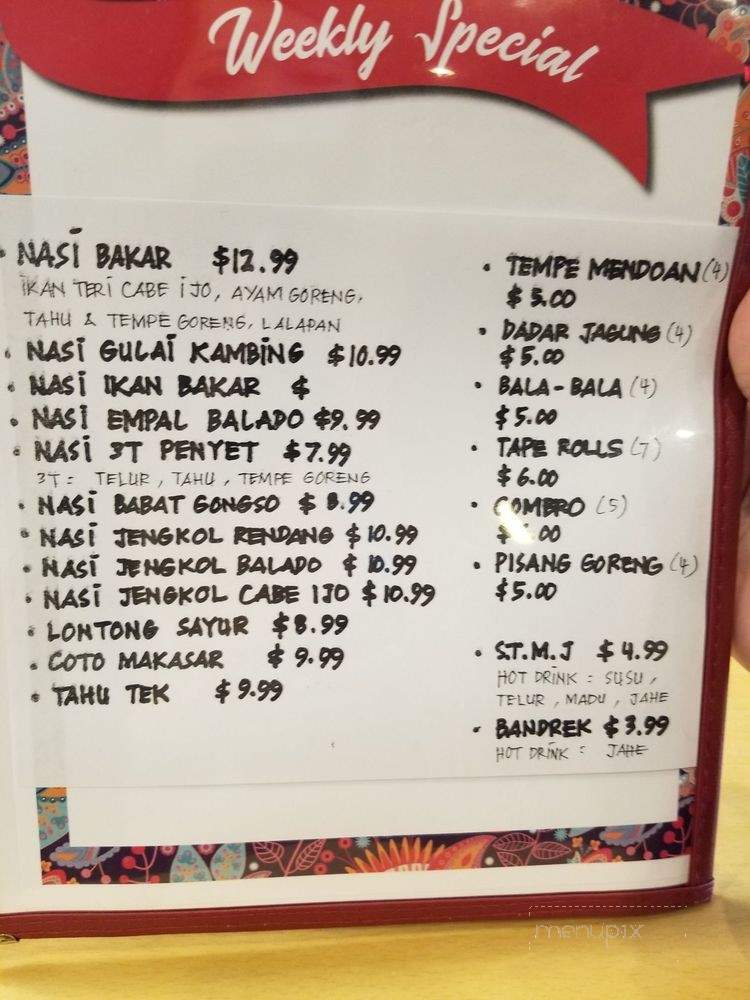 Weekly Special
• NASI BAKAR $12.99
IKAN TERI CABE IJO, AYAM GORENG,
TAHU & TEMPE GORENG, LALAPAN
• NASI GULAI KAMBING $10.99
• NASI IKAN BAKAR $
• NASI EMPAL BALADO $9.99
• NASI 3T PENYET $7.99
3T = TELUR, TAHU, TEMPE GORENG
• NASI BABAT GONGSO $8.99
• NASI JENGKOL RENDANG $10.99
• NASI JENGKOL BALADO $10.99
• NASI JENGKOL CABE IJO $10.99
• LONTONG SAYUR $8.99
• COTO MAKASAR $9.99
• TAHU TEK $9.99
• TEMPE MENDOAN (4)
$5.00
• DADAR JAGUNG (4)
$5.00
• BALA-BALA (4)
$5.00
• TAPE ROLLS (7)
$6.00
• COMBRO (5)
• PISANG GORENG (4)
$5.00
• S.T.M.J $4.99
HOT DRINK : SUSU,
TELUR, MADU, JAHE
• BANDREK $3.99
HOT DRINK : JAHE
menupix